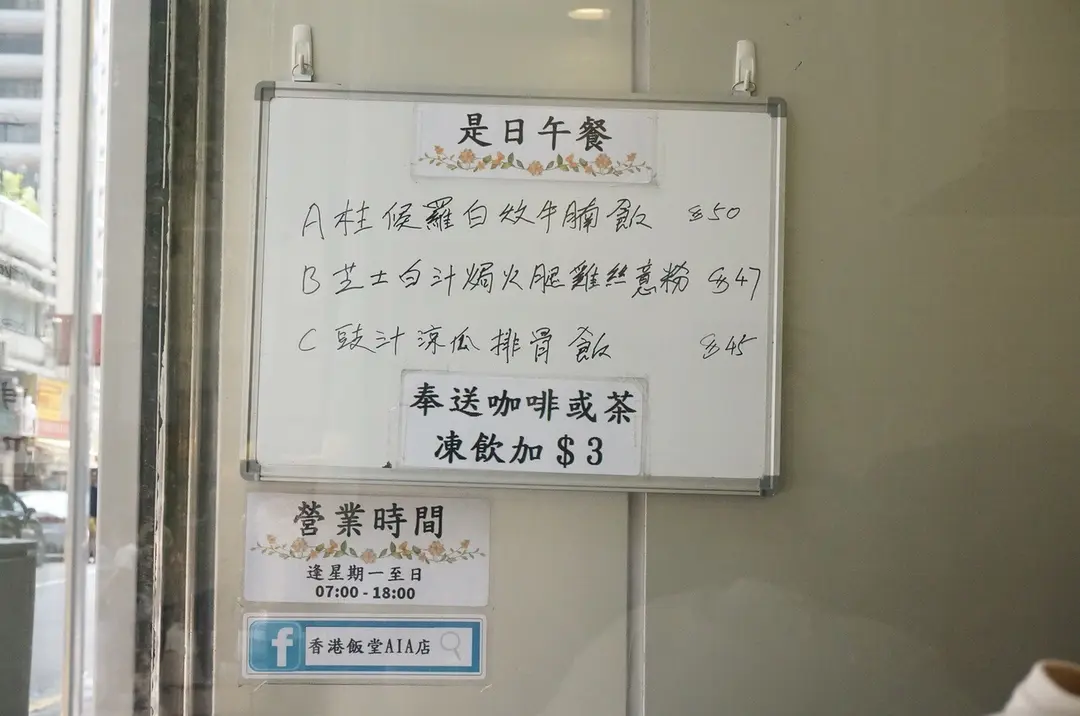 是日午餐
A 柱侯羅白炆牛腩飯 $50
B 芝士白汁焗火腿雞絲意粉 $47
C 豉汁涼瓜排骨飯 $45
奉送咖啡或茶
凍飲加$3
營業時間
逢星期一至日
07:00 - 18:00
f 香港飯堂AIA店